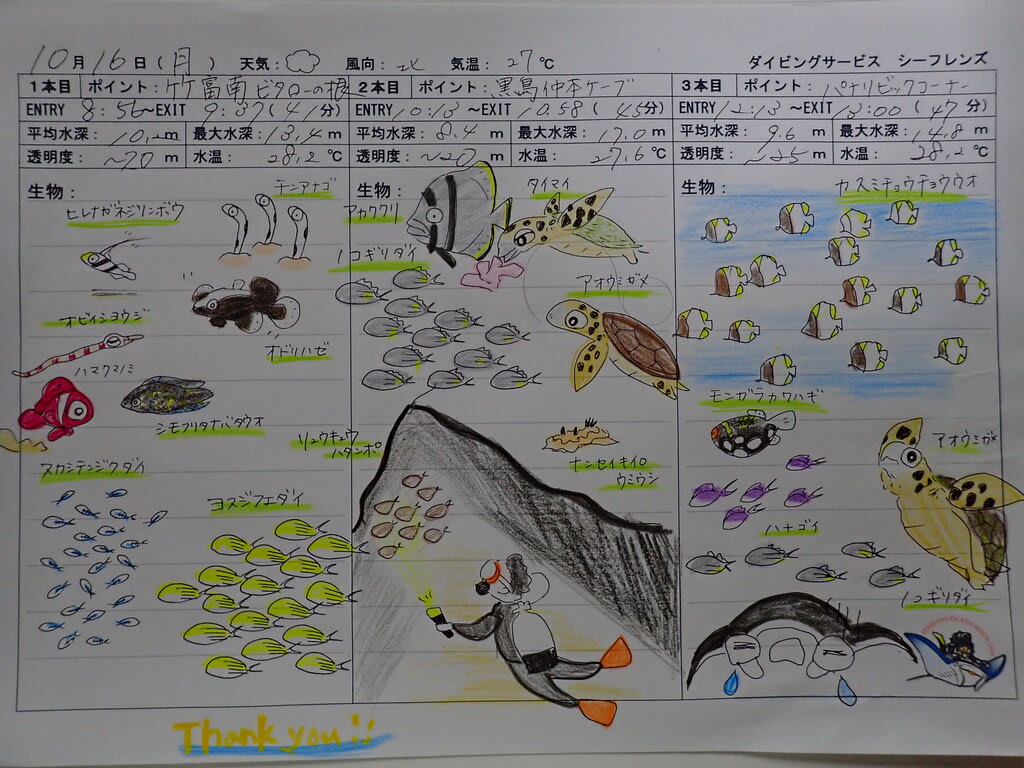 10月16日(月) 天気: 風向: 北 気温: 27℃ ダイビングサービス シーフレンズ
1本目 ポイント: 竹富南 ビタローの根
ENTRY 8:56~EXIT 9:37(41分)
平均水深: 10.2m 最大水深: 13.4m
透明度: ~20m 水温: 28.2℃
生物:
チンアナゴ
ヒレナガネジリンボウ
オビイシヨウジ
オドリハゼ
ハマクマノミ
シモフリタナバタウオ
スカシテンジクダイ
ヨスジフエダイ
2本目 ポイント: 黒島仲本ケーブ
ENTRY 10:13~EXIT 10:58(45分)
平均水深: 8.4m 最大水深: 17.0m
透明度: ~20m 水温: 27.6℃
生物:
タイマイ
アカククリ
ノコギリダイ
アオウミガメ
リュウキュウ
ハタンポ
ナンセイキイロ
ウミウシ
3本目 ポイント: パナリビックコーナー
ENTRY 12:13~EXIT 13:00(47分)
平均水深: 9.6m 最大水深: 14.8m
透明度: ~25m 水温: 28.2℃
生物:
カスミチョウチョウウオ
モンガラカワハギ
アオウミガメ
ハナゴイ
ノコギリダイ
Thank you!!